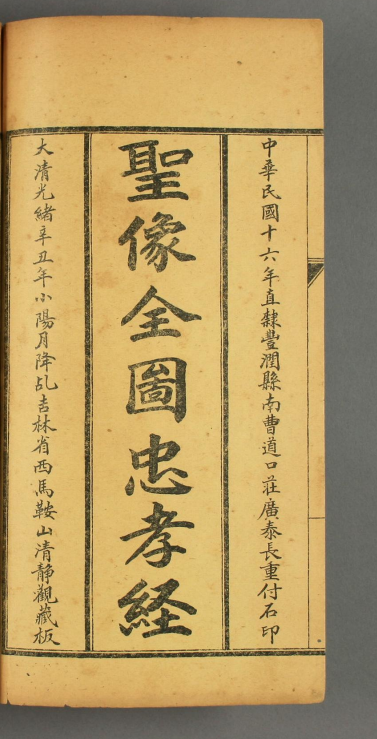 中華民國十六年直隸豐潤縣南曹道口莊廣泰長重付石印
聖像全圖忠孝経
大清光緒辛丑年小陽月降乩吉林省西馬鞍山清靜觀藏板